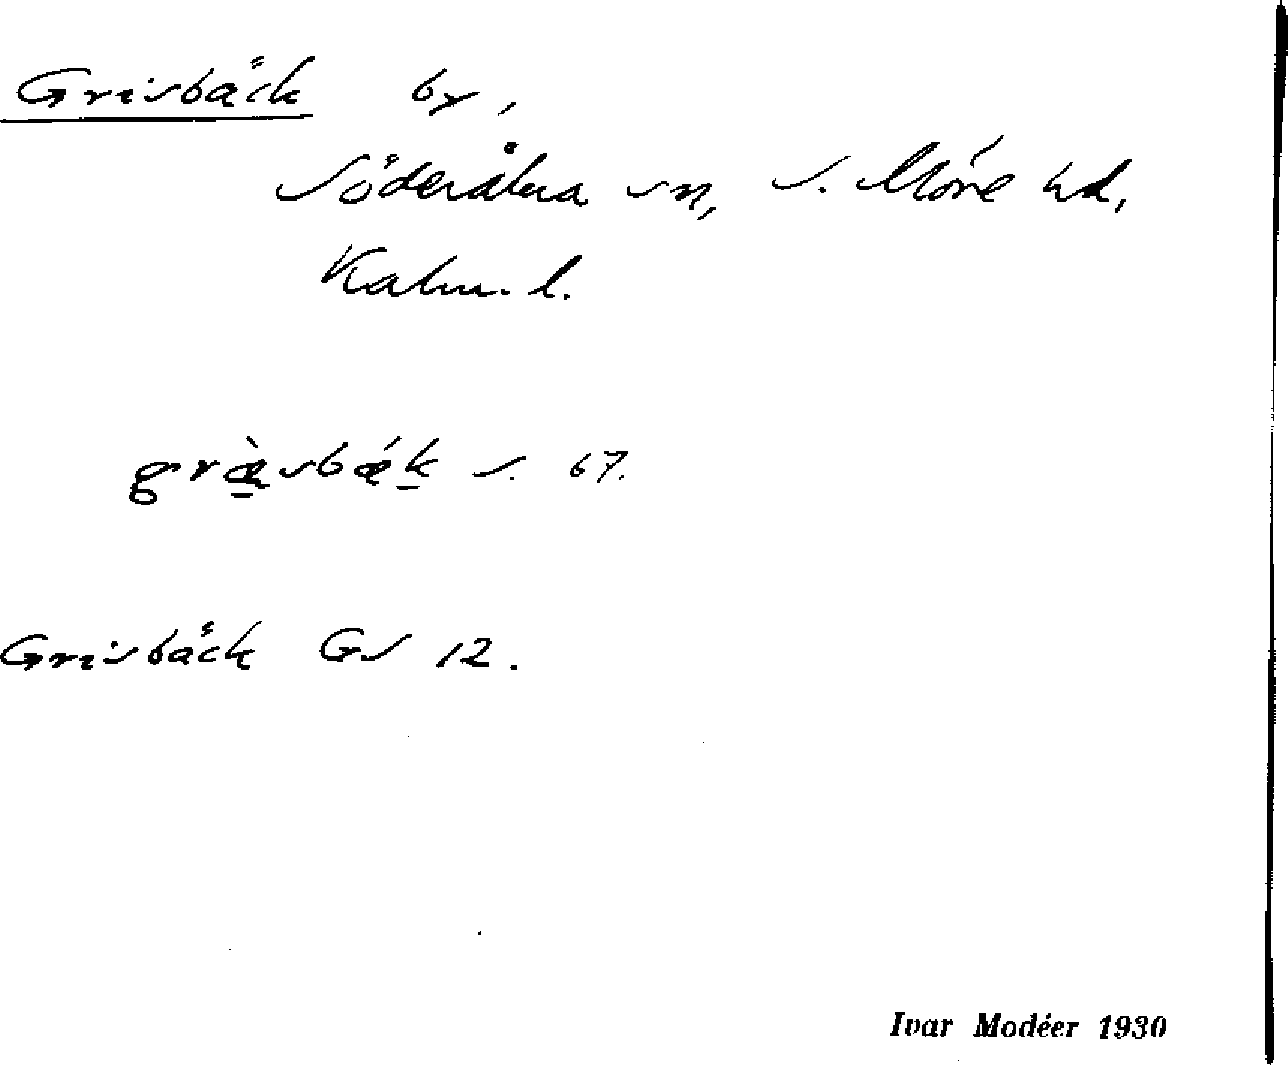 Grisbäck by,
Söderåkra sn, S. Möre hd,
Kalm. l.
græ̀sbǽk s. 67.
Grisbäck GS 12.
Ivar Modéer 1930